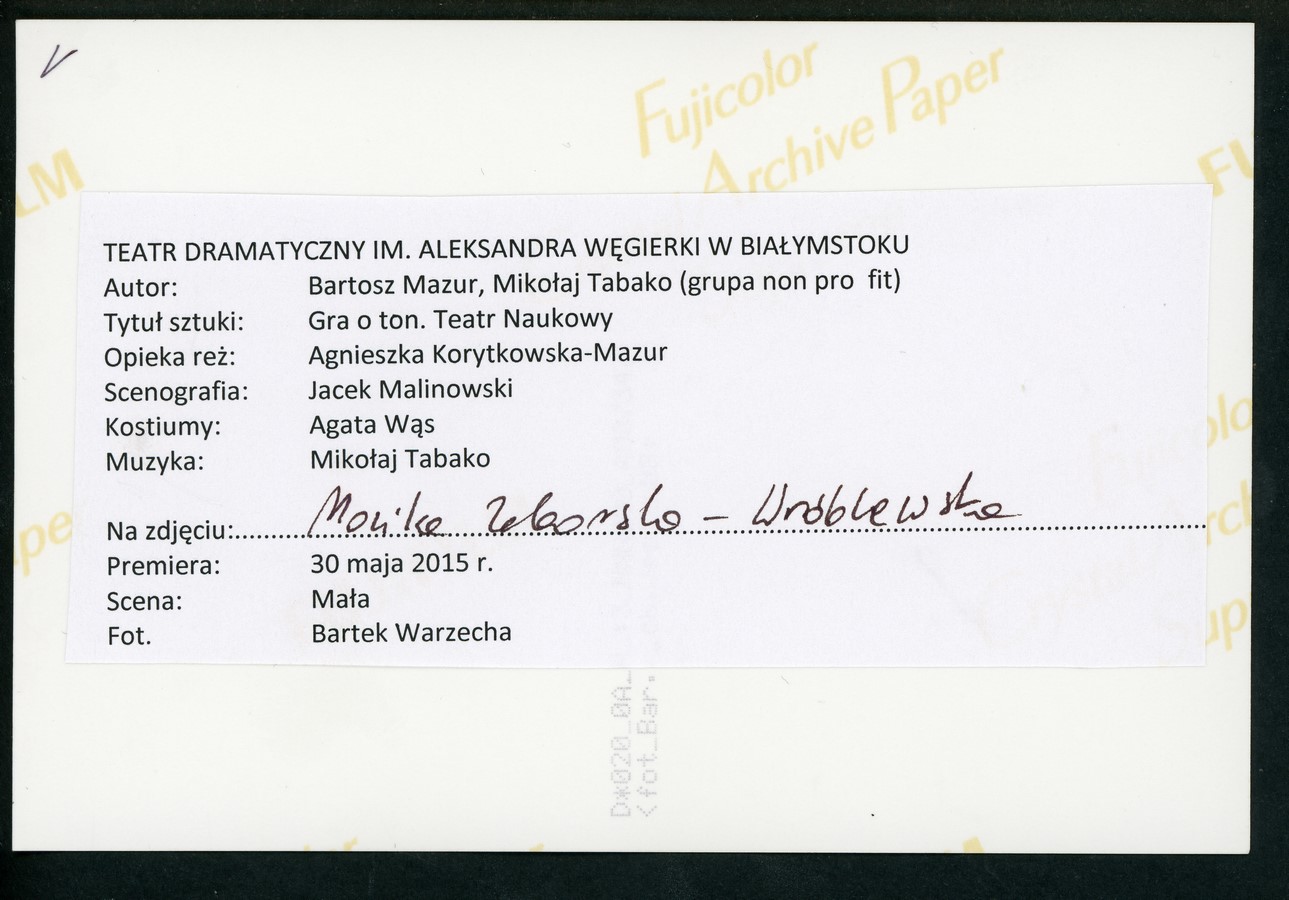 Fujicolor
Archive Paper
LM
TEATR DRAMATYCZNY IM. ALEKSANDRA WĘGIERKI W BIAŁYMSTOKU
Autor: Bartosz Mazur, Mikołaj Tabako (grupa non pro fit)
Tytuł sztuki: Gra o ton. Teatr Naukowy
Opieka reż: Agnieszka Korytkowska-Mazur
Scenografia: Jacek Malinowski
Kostiumy: Agata Wąs
Muzyka: Mikołaj Tabako
Na zdjęciu: Monika Zaborska - Wróblewska
Premiera: 30 maja 2015 r.
Scena: Mała
Fot. Bartek Warzecha
D*020_0A_
<fot_Bar.